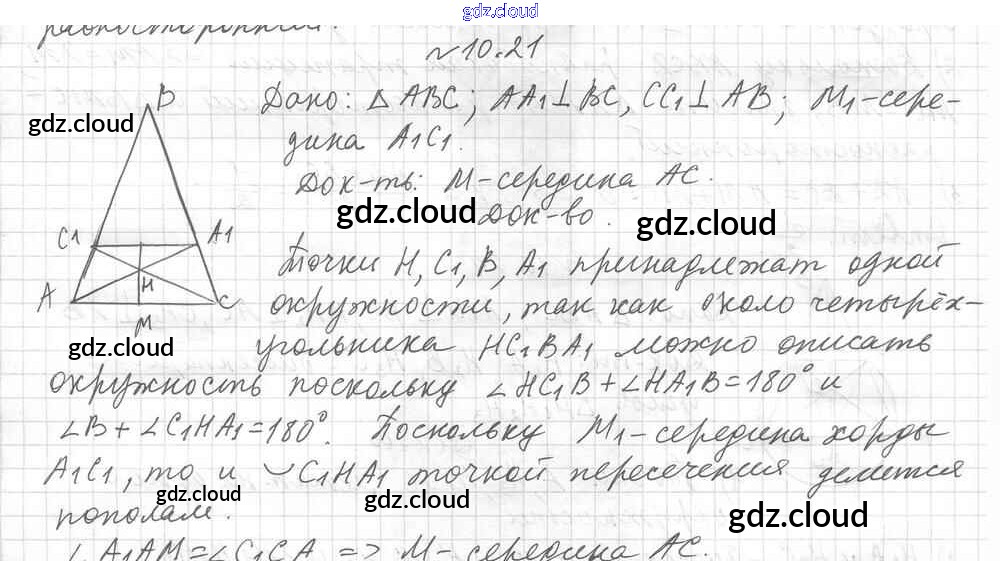 gdz.cloud
равносторонний.
№10.21
Дано: △ABC; AA1⊥BC, CC1⊥AB; M1-сере-
дина A1C1.
Док-ть: M-середина AC.
Док-во.
Точки H, C1, B, A1 принадлежат одной
окружности, так как около четырёх-
угольника HC1BA1 можно описать
окружность поскольку ∠HC1B+∠HA1B=180° и
∠B+∠C1HA1=180°. Поскольку M1-середина хорды
A1C1, то и ◡C1HA1 точкой пересечения делится
пополам.
∠A1AM=∠C1CA => M-середина AC.
B
C1
A1
H
A
C
M
gdz.cloud
gdz.cloud
gdz.cloud
gdz.cloud
gdz.cloud
gdz.cloud
gdz.cloud